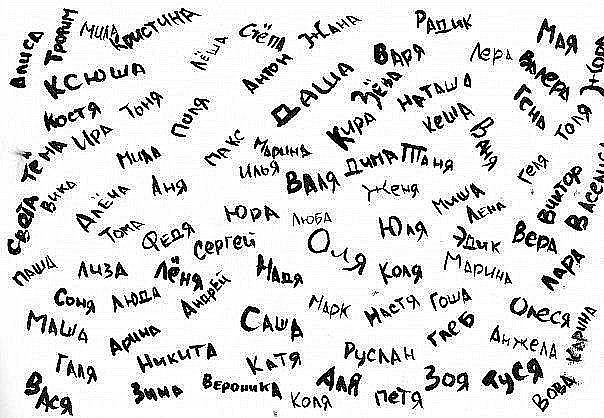 Алиса
Трофим
Мила
Кристина
Лёша
Стёпа
Жана
Радик
Варя
Лера
Мая
Жора
Ксюша
Антон
Даша
Зёва
Наташа
Валера
Костя
Тоня
Поля
Кира
Кеша
Ваня
Гена
Толя
Тёма
Ира
Мила
Макс
Марина
Илья
Валя
Дима
Таня
Женя
Геля
Виктор
Света
Вика
Алёна
Аня
Миша
Лена
Василиса
Тома
Федя
Юра
Люба
Юля
Эдик
Вера
Сергей
Оля
Паша
Лиза
Лёня
Надя
Коля
Марина
Лара
Соня
Люда
Андрей
Марк
Настя
Гоша
Олеся
Маша
Арина
Саша
Глеб
Анжела
Карина
Галя
Никита
Катя
Руслан
Вася
Зина
Вероника
Коля
Аля
Петя
Зоя
Дуся
Вова